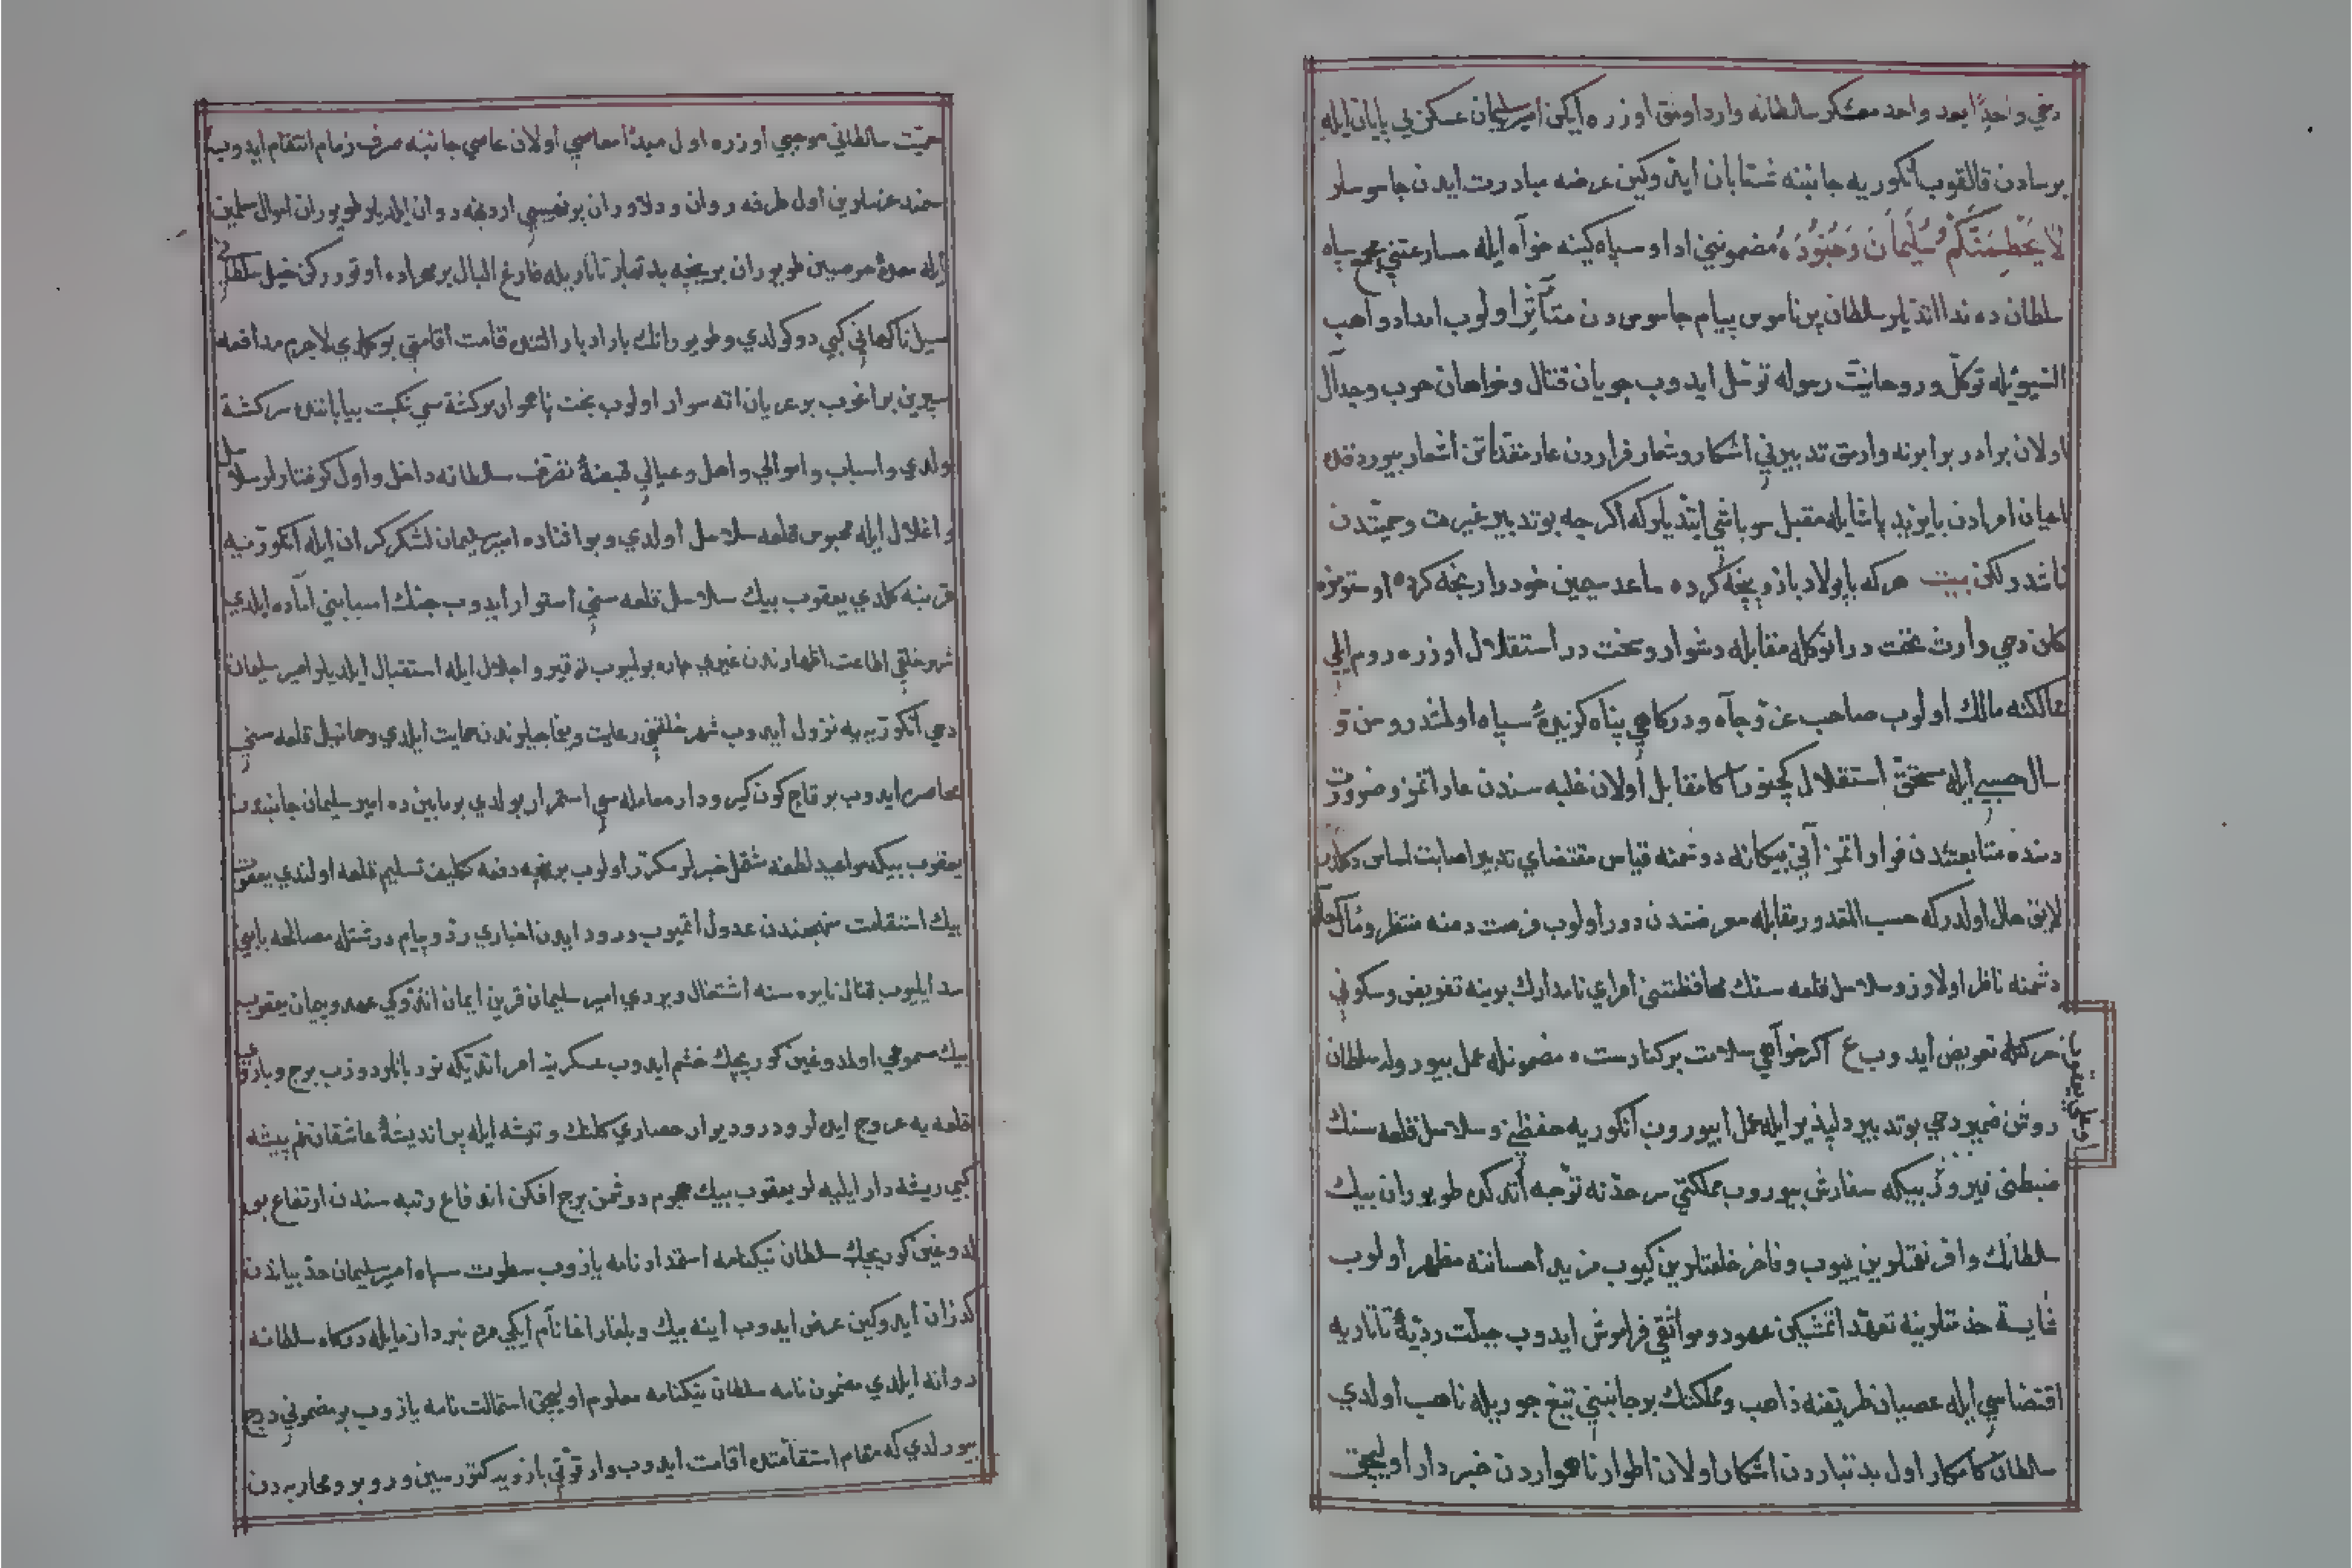 دخي واحدا بعد واحد معسكر سلطانه وارد اولمق اوزره ايكن امير سليمان عسكر بي پايان ايله
برسادن قالقوب انكوريه جانبنه شتابان ايدوكين عرضه مبادرت ايدن جاسوسلر
لَا يَحْطِمَنَّكُمْ سُلَيْمَانُ وَجُنُودُهُ مضمونيني ادا و سپاه كينه خواه ايله مسارعتني سپاه
سلطان ده ندا اتديلر سلطان پر ناموس پيام جاسوس دن متأثر اولوب امداد واهب
توكل و روحانيت رسوله توسل ايدوب جويان قتال و خواهان حرب و جدال
اولان برادر برابرنه وارمق تدبيرني اشكار و شعار فراردن عار اشعار بيوردقده
اعيان امرادن بايزيد پاشا ايله مقبل سوباشي ايتديلر كه اكرچه بو تدبير غيرت و حميتدن
ناشدر لكن بيت هر كه با پولاد بازو پنجه كرده ساعد سيمين خود را رنجه كرد اوستوڭزه
كلن دخي وارث تختدر انوڭله مقابله دشوار و سخت در استقلال اوزره روم ايلي
ممالكنه مالك اولوب صاحب عز و جاه و دركاهي پناه سپاه اولمشدر و من
سال حسبي ايله مستحق استقلال كچنور اكا مقابل اولان غلبه سندن عار اتمز و ضرورت
دمنده متابعتدن فرار اتمز آني بيكانه دوشمنه قياس مقتضاي تدبير اصابت اساس دكلدر
لايق حال اولدر كه حسب المقدور مقابله معرضندن دور اولوب فرصت دمنه منتظر و مآل
دشمنه ناظر اولاوز و سلاسل قلعه سنك محافظتني امراي نامداردن برينه تفويض و سكوني
حركتله تعويض ايدوب ع اكر خواهي سلامت بر كنارست مضمونيله عمل بيورولدي سلطان
روشن ضمير دخي بو تدبير دلپذير ايله عمل ايبيوروب انكوريه حفظني و سلاسل قلعه سنك
ضبطنى فيروز بيكه سفارش بيوروب مملكتي سرحدنه توجه اتدكده طويوران بيك
سلطانك وافر نعمتلرين ييوب و فاخر خلعتلرين كيوب مزيد احساننه مظهر اولوب
شايسته خدمتلرينه تعهد اتمشيكن عهود و مواثقي فراموش ايدوب جبلت رديه تاتاريه
اقتضاسي ايله عصيان طريقنه ذاهب و مملكتك بر جانبني تيغ جور يله ناهب اولدي
سلطان كامكار اول بدتباردن اشكار اولان اطوار ناهمواردن خبردار اوليجق
حميت سلطاني موجبي اوزره اول مبدأ معاصي اولان عاصي جانبنه صرف زمام انتقام ايدوب
سمند عزملرين اول طرفه روان و دلاوران پر نهيبي اردنجه دوان ايلديلر طويوران اموال مسلمين
ايله طويوران بر نيچه بدتبار تاتار يله فارغ البال بر محراده اوتورركن خيل سلطاني
سيل ناكهاني كبي دوكولدي و طويورانك بار ادبار التنده قامت اقامتي بوكلدي لاجرم مدافعه
سپرين براغوب بر عريان اته سوار اولوب بخت ناهموار بركشته سي نكبت بياباننده سركشته
اولدي و اسباب و اموالي و اهل و عيالي قبضه تصرف سلطانه داخل و اول كرفتارلر سلاسل
و اغلال ايله محبوس قلعه سلاسل اولدي و بو اثناده امير سليمان لشكر كران ايله انكوريه
قربنه كلدي يعقوب بيك سلاسل قلعه سني استوار ايدوب جنك اسبابني آماده ايلدي
شهر خلقي اطاعت اظهارندن غيري چاره بوليوب توقير و اجلال ايله استقبال ايلديلر امير سليمان
دخي انكوريه يه نزول ايدوب شهر خلقني رعايت و حمايت ايلدي و قلعه سني
محاصره ايدوب بر قاچ كون كير و دار معامله سي استمرار بولدي بو مابين ده امير سليمان جانبندن
يعقوب بيكه مواعيد خبرلر مكرر اولوب بر نيچه دفعه تكليف تسليم قلعه اولندي يعقوب
بيك استقامت منهجندن عدول اتميوب ورود ايدن اخباري رد و پيام مصالحه بابني
سد ايليوب قتال نايره سنه اشتعال ويردي امير سليمان قرين ايمان اتدوكي عهد و پيمان يعقوب
بيك مسموعي اولمدوغين كوريجك خشم ايدوب عسكرينه امر اتديكه نردبانلر دوزب برج و باروي
قلعه يه عروج ايدلر و در و ديوار حصاري كلنك و تيشه ايله پر انديشه عاشقان غم پيشه
كبي ريشه دار ايليه لر يعقوب بيك هجوم دوشمن برج افكن اندفاع رتبه سندن ارتفاع بو
لدوغين كوريجك سلطان نيكنامه استمداد نامه يازوب سطوت سپاه امير سليمان حد بياندن
كذران ايدوكين عرض ايدوب اينه بيك و بلغار اغا نام ايكي مرد نبردازمايله دركاه سلطانه
روانه ايلدي مضمون نامه سلطان نيكنامه معلوم اوليجق استمالت نامه يازوب بو مضموني درج
بيورلدي كه مقام استقامتده اقامت ايدوب وار قوتي بازويه كتورسين و محاربه دن